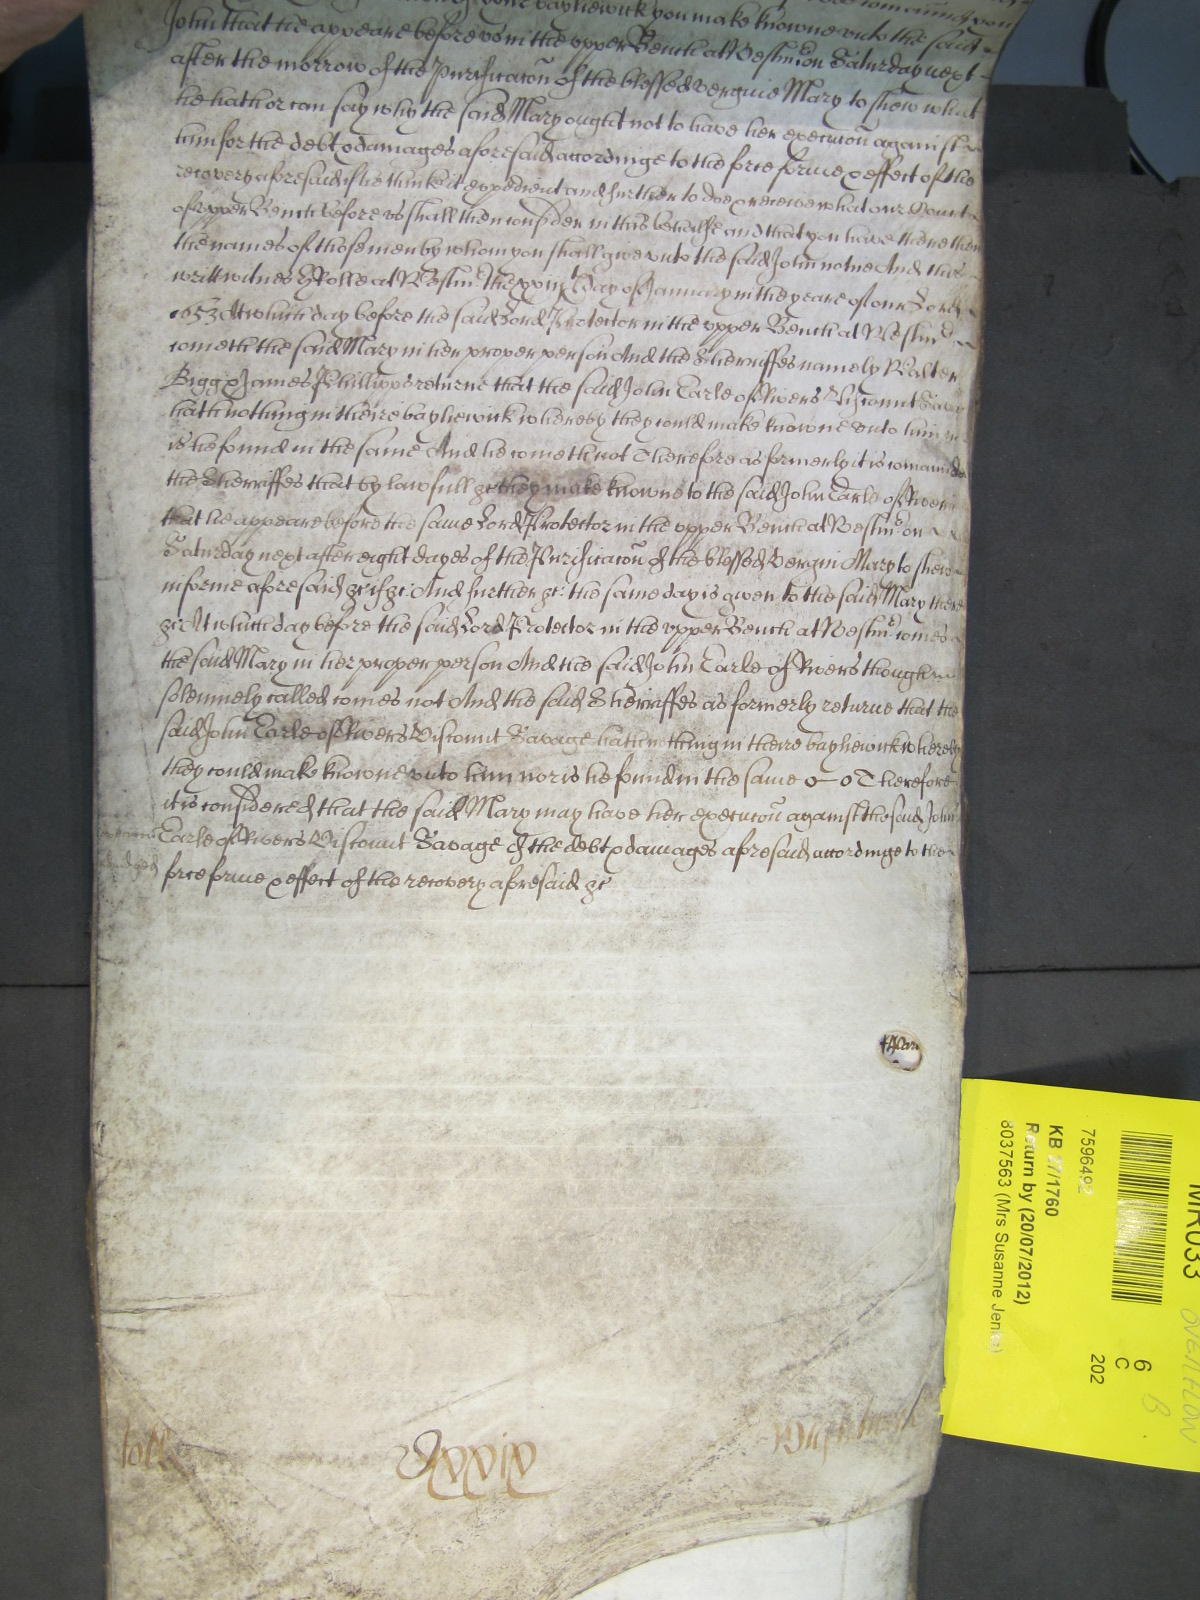 your bayliewick you make knowne unto the said
John that he appeare before us in the upper Bench at Westm on Saturday next
after the morrow of the Purificacõn of the blessed vergine Mary to shew what
he hath or can say why the said Mary ought not to have her execucõn against
him for the debt & damages aforesaid accordinge to the force forme & effect of the
recovery aforesaid if he thinke it expedient and further to doe & receive what our Court
of upper Bench before us shall then consider in this behalfe and that you have there then
the names of those men by whom you shall give unto the said John notice And this
writt witnes H Rolle at Westm the day of January in the yeare of our Lord
1653 At which day before the said Lord Protector in the upper Bench at Westm
cometh the said Mary in her proper person And the Sherriffes namely Walter
Bigg & James Phillipps returne that the said John Earle of Rivers Viscount Savage
hath nothing in theire bayliewick whereby they could make knowne unto him nor
is he found in the same And he cometh not Therefore as formerly it is comanded
the Sherriffes that by lawfull &c they make knowne to the said John Earle of Rivers
that he appeare before the same Lord Protector in the upper Bench at Westm on
Saturday next after eight dayes of the Purificacõn of the blessed Vergin Mary to shew
in forme aforesaid &c if &c And further &c the same day is given to the said Mary there
&c At which day before the said Lord Protector in the upper Bench at Westm comes
the said Mary in her proper person And the said John Earle of Rivers though
solemnely called comes not And the said Sherriffes as formerly returne that the
said John Earle of Rivers Viscount Savage hath nothing in theire bayliewick whereby
they could make knowne unto him nor is he found in the same Therefore
it is considered that the said Mary may have her execucõn against the said John
Earle of Rivers Viscount Savage of the debt & damages aforesaid accordinge to the
force forme & effect of the recovery aforesaid &c
xxix
MR033
OVERFLOW
B
6
C
202
7596492
KB 27/1760
Return by (20/07/2012)
8037563 (Mrs Susanne Jen